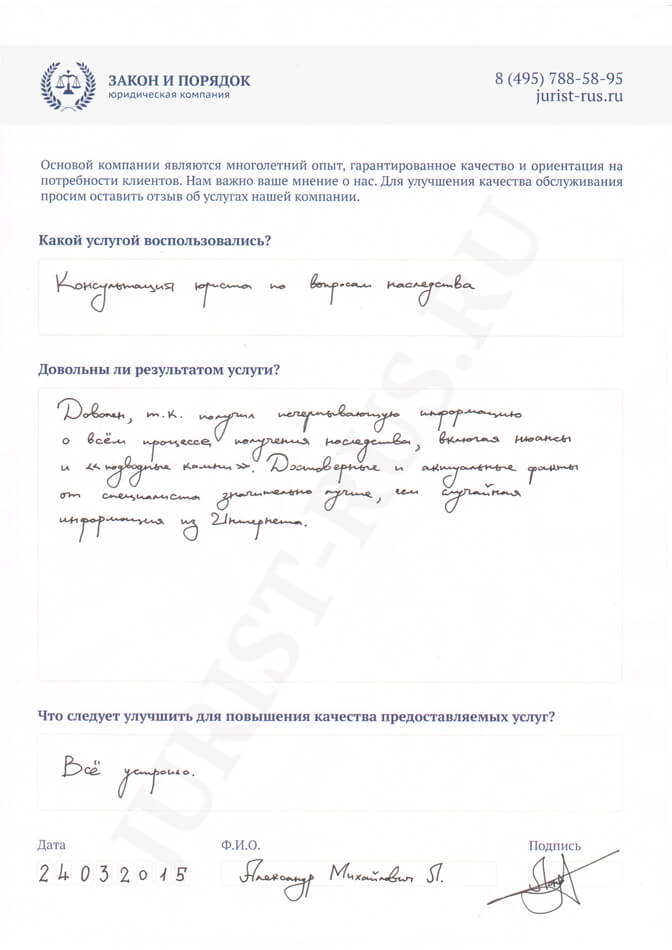 ЗАКОН И ПОРЯДОК
юридическая компания
8 (495) 788-58-95
jurist-rus.ru
Основой компании являются многолетний опыт, гарантированное качество и ориентация на
потребности клиентов. Нам важно ваше мнение о нас. Для улучшения качества обслуживания
просим оставить отзыв об услугах нашей компании.
Какой услугой воспользовались?
Консультация юриста по вопросам наследства
Довольны ли результатом услуги?
Доволен, т.к. получил исчерпывающую информацию
о всём процессе получения наследства, включая нюансы
и «подводные камни». Достоверные и актуальные факты
от специалиста значительно лучше, чем случайная
информация из Интернета.
Что следует улучшить для повышения качества предоставляемых услуг?
Всё устроило.
Дата
Ф.И.О.
Подпись
24032015
Александр Михайлович Л.
JURIST-RUS.RU